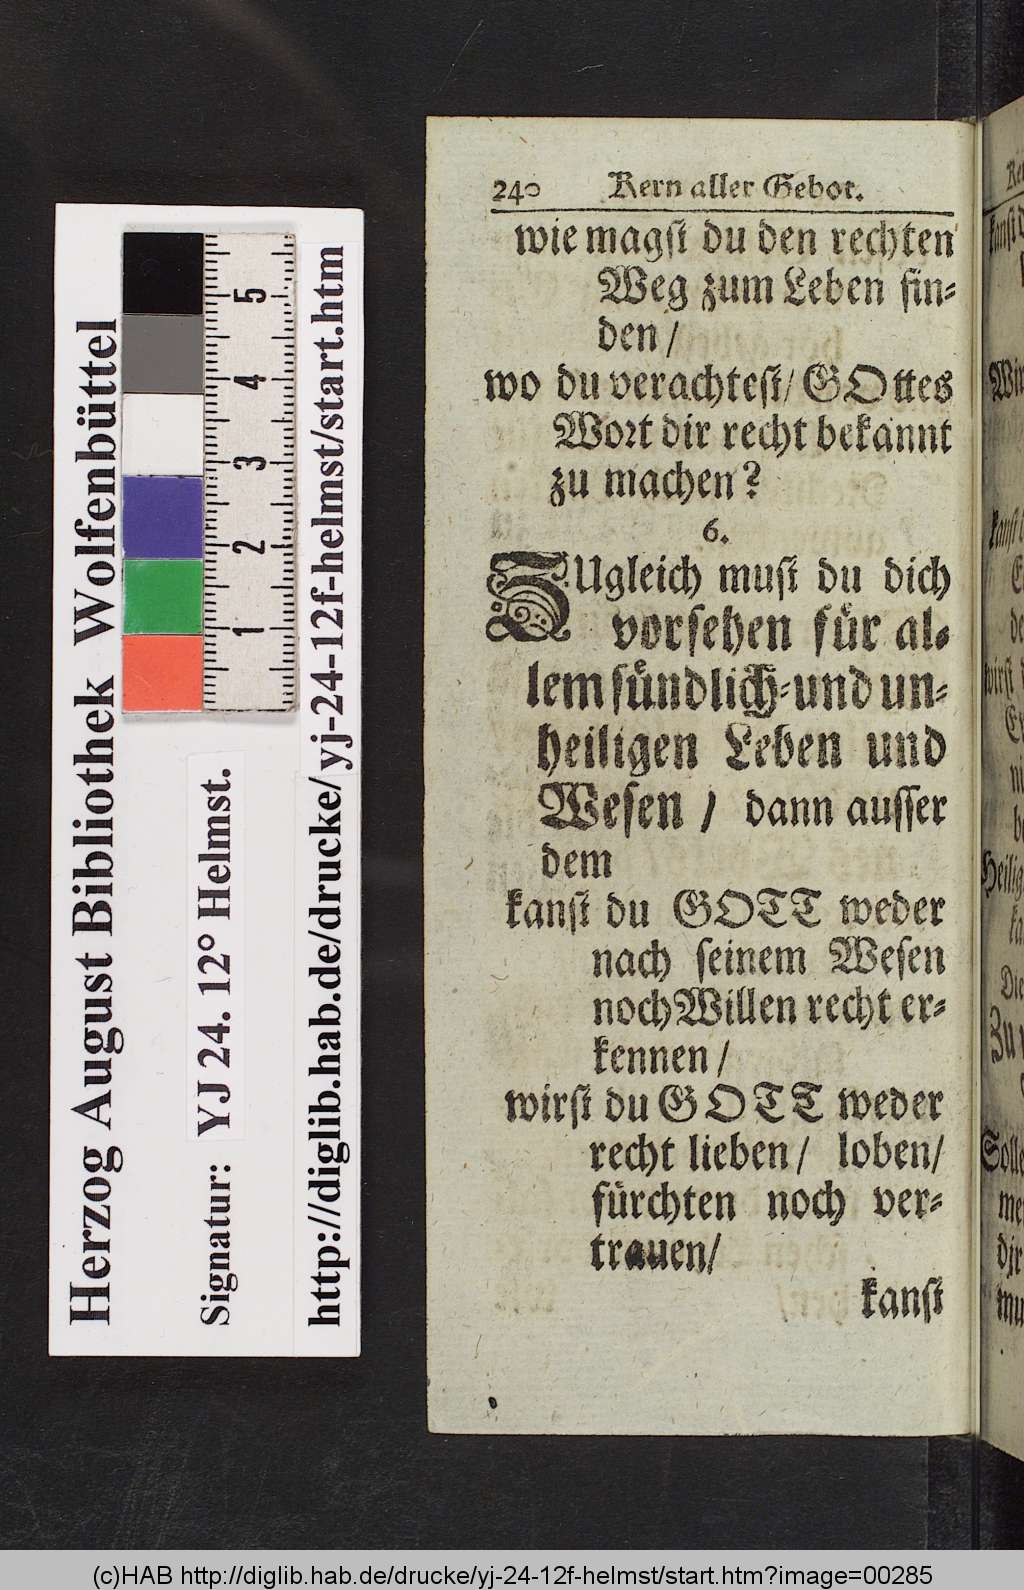 240 Kern aller Gebot.
wie magſt du den rechten
Weg zum Leben fin⸗
den /
wo du verachteſt / GOttes
Wort dir recht bekannt
zu machen?
6.
ZUgleich muſt du dich
vorſehen für al⸗
lem ſündlich⸗und un⸗
heiligen Leben und
Weſen / dann auſſer
dem
kanſt du GOTT weder
nach ſeinem Weſen
noch Willen recht er⸗
kennen /
wirſt du GOTT weder
recht lieben / loben /
fürchten noch ver⸗
trauen /
kanſt
Herzog August Bibliothek Wolfenbüttel
Signatur: YJ 24. 12° Helmst.
http://diglib.hab.de/drucke/yj-24-12f-helmst/start.htm
5
4
3
2
1
(c)HAB http://diglib.hab.de/drucke/yj-24-12f-helmst/start.htm?image=00285